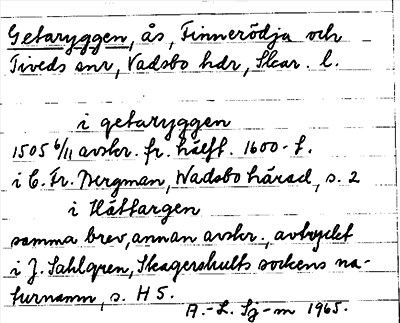 Getaryggen, ås, Finnerödja och
Tiveds snr, Vadsbo hdr, Skar. l.
i getaryggen
1505 6/11 avskr. fr. hälft. 1600-t.
i C. Fr. Bergman, Wadsbo härad, s. 2
i Hättargen
samma brev, annan avskr., avtryckt
i J. Sahlgren, Skagershults sockens na-
turnamn, s. H 5.
A.-L. Sj-m 1965.